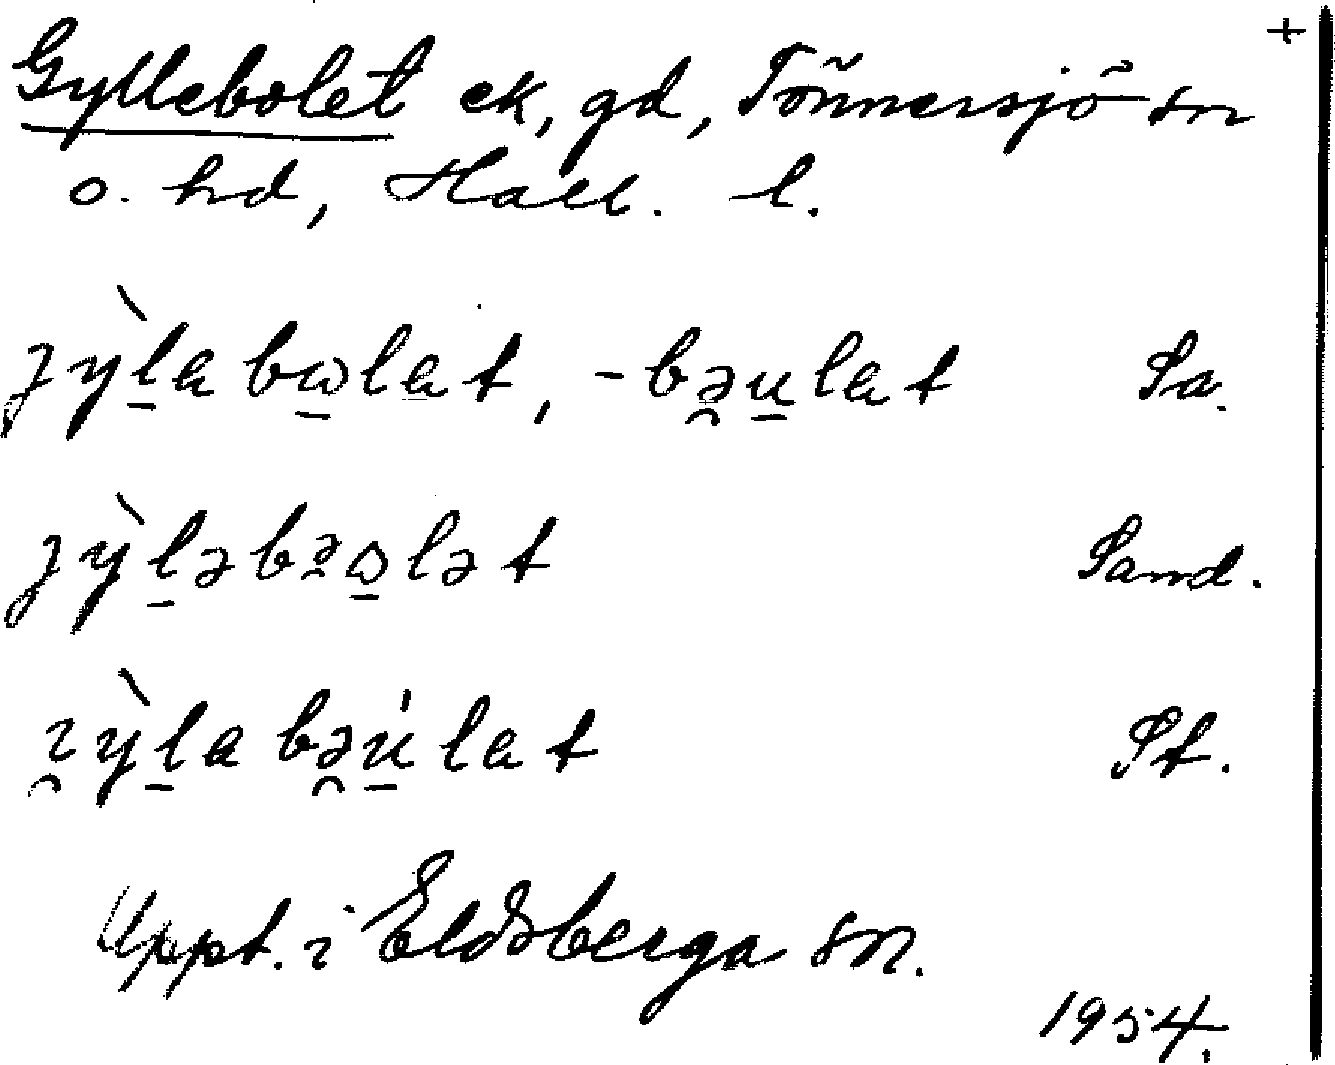 +
Gyllebolet ek, gd, Tönnersjö sn
o. hd, Hall. l.
ȷỳl̲abω̲lat, -bə̯u̲lat Sa.
ȷỳl̲əbɜω̲lət Sand.
ɿ̯ỳl̲abə̯ú̲lat St.
Uppt. i Eldsberga sn.
1954.